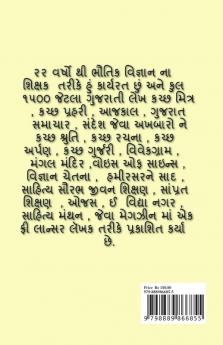 ૨૨ વર્ષો થી ભૌતિક વિજ્ઞાન ના
શિક્ષક તરીકે હું કાર્યરત છું અને કુલ
૧૫૦૦ જેટલા ગુજરાતી લેખ કચ્છ મિત્ર
, કચ્છ પ્રહરી , આજકાલ , ગુજરાત
સમાચાર , સંદેશ જેવા અખબારો ને
કચ્છ શ્રુતિ , કચ્છ રચના , કચ્છ
અર્પણ , કચ્છ ગુર્જરી , વિવેકગ્રામ ,
મંગલ મંદિર ,વોઇસ ઓફ સાઇન્સ ,
વિજ્ઞાન ચેતના , હમીરસરને સાદ ,
સાહિત્ય સૌરભ જીવન શિક્ષણ , સાંપ્રત
શિક્ષણ , ઓજસ , ઈ વિદ્યા નગર ,
સાહિત્ય મંથન , જેવા મેગઝીન માં એક
ફ્રી લાન્સર લેખક તરીકે પ્રકાશિત કર્યા
છે.
9 798889 866855